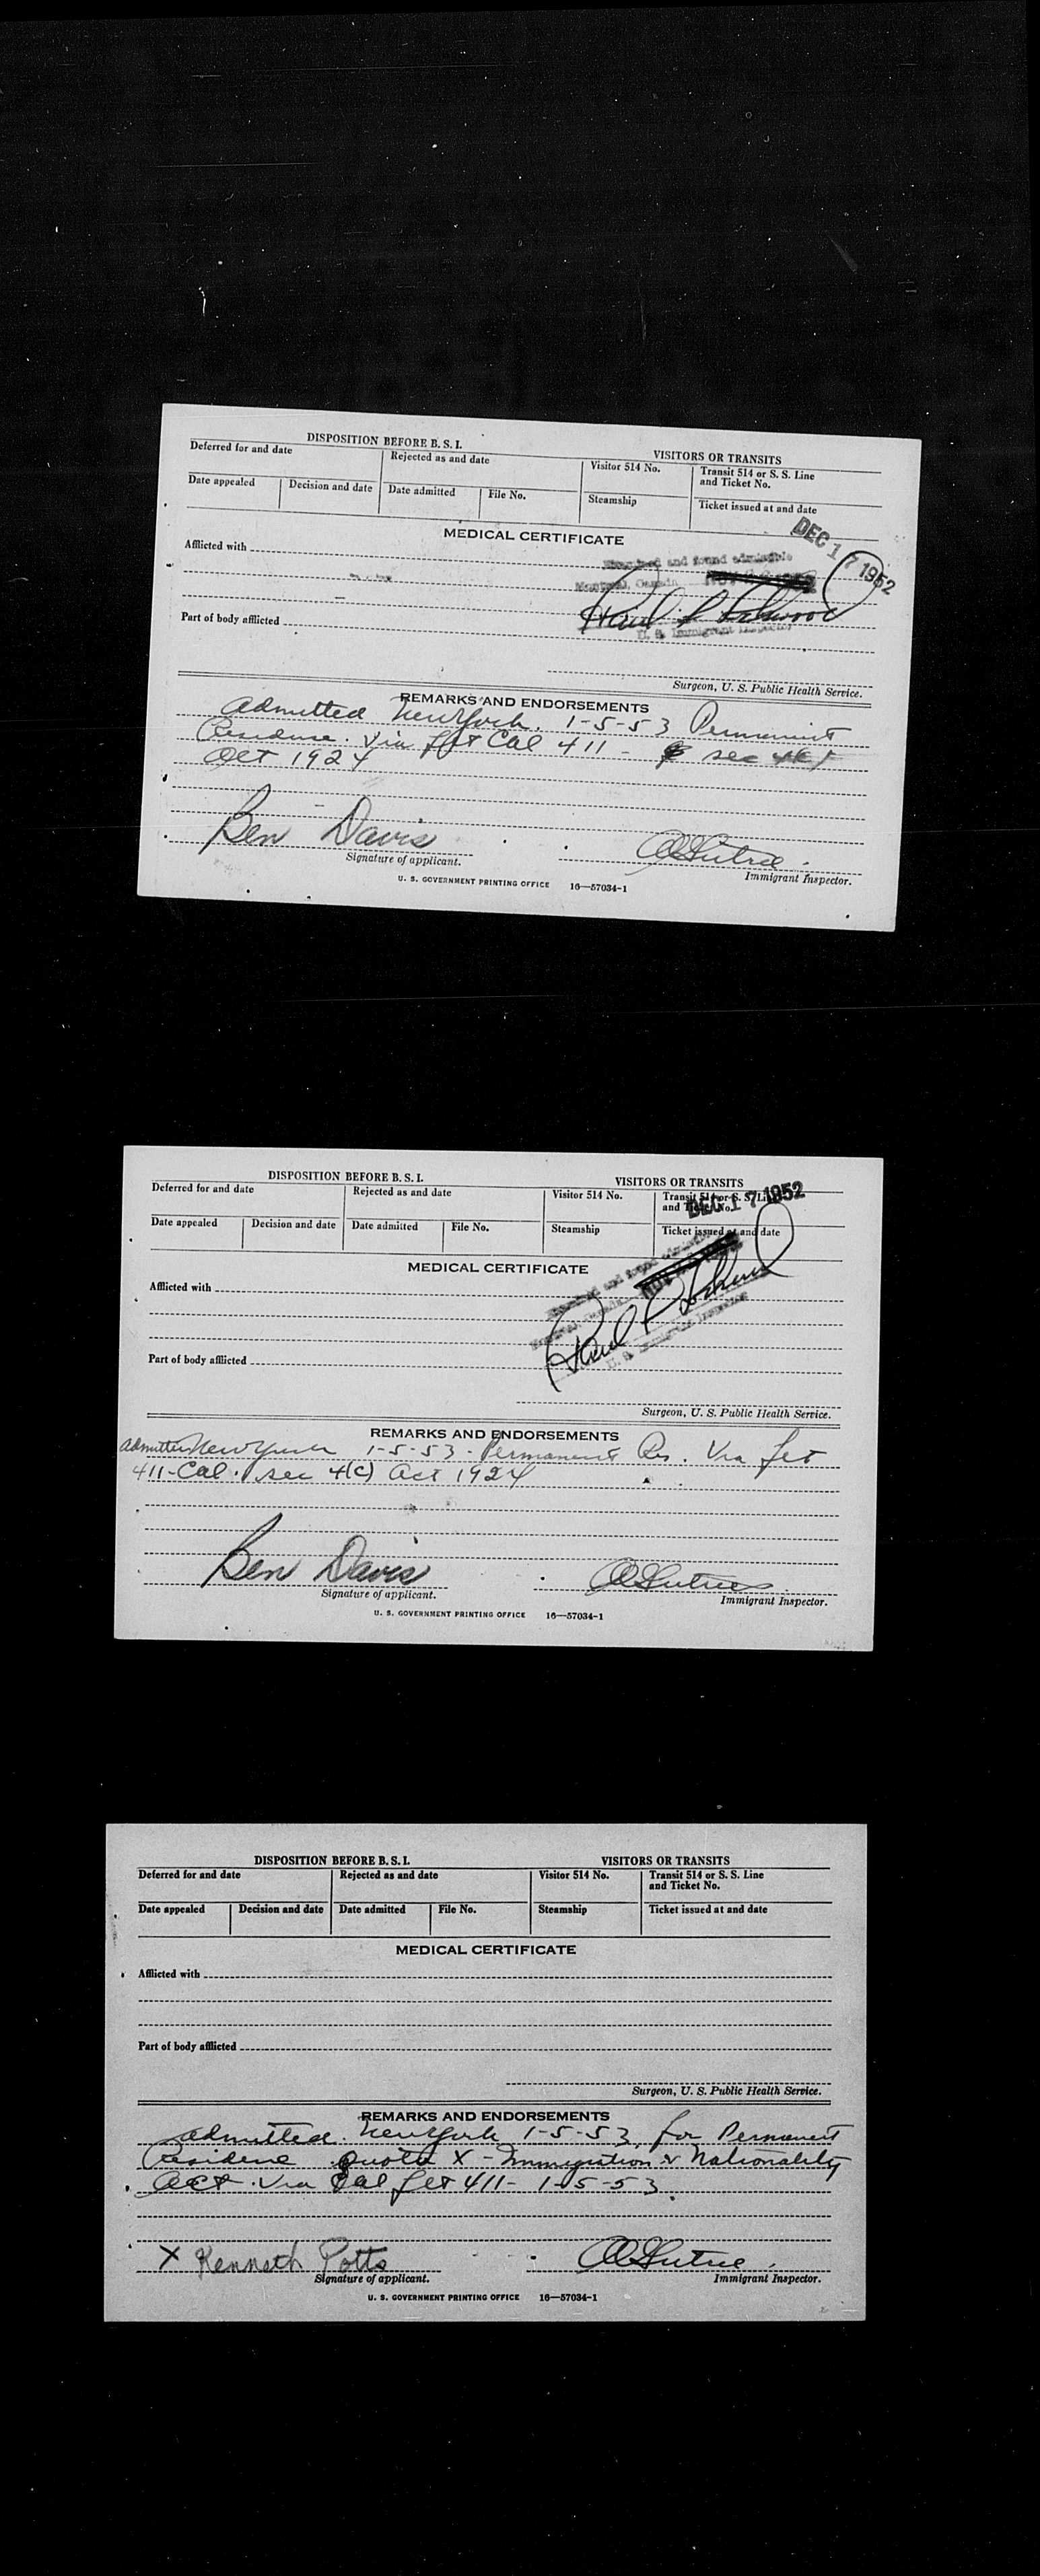 DISPOSITION BEFORE B. S. I.
VISITORS OR TRANSITS
Deferred for and date
Rejected as and date
Visitor 514 No.
Transit 514 or S. S. Line
and Ticket No.
Date appealed
Decision and date
Date admitted
File No.
Steamship
Ticket issued at and date
DEC 17 1952
MEDICAL CERTIFICATE
Afflicted with
Examined and found admissible
Montreal, Canada
Part of body afflicted
U. S. Immigrant Inspector
Surgeon, U. S. Public Health Service.
REMARKS AND ENDORSEMENTS
Admitted New York. 1-5-53 Permanent
Residence. Via Cal 411 - sec
Act 1924
Ben Davis
Signature of applicant.
Immigrant Inspector.
U. S. GOVERNMENT PRINTING OFFICE 16—57034-1
DISPOSITION BEFORE B. S. I.
VISITORS OR TRANSITS
Deferred for and date
Rejected as and date
Visitor 514 No.
Transit 514 or S. S. Line
and Ticket No.
DEC 17 1952
Date appealed
Decision and date
Date admitted
File No.
Steamship
Ticket issued at and date
MEDICAL CERTIFICATE
Afflicted with
Examined and found
Part of body afflicted
U. S. Immigrant Inspector
Surgeon, U. S. Public Health Service.
REMARKS AND ENDORSEMENTS
Admitted New York 1-5-53. Permanent Res. Via
411-Cal. sec 4(c) Act 1924
Ben Davis
Signature of applicant.
Immigrant Inspector.
U. S. GOVERNMENT PRINTING OFFICE 16—57034-1
DISPOSITION BEFORE B. S. I.
VISITORS OR TRANSITS
Deferred for and date
Rejected as and date
Visitor 514 No.
Transit 514 or S. S. Line
and Ticket No.
Date appealed
Decision and date
Date admitted
File No.
Steamship
Ticket issued at and date
MEDICAL CERTIFICATE
Afflicted with
Part of body afflicted
Surgeon, U. S. Public Health Service.
REMARKS AND ENDORSEMENTS
Admitted. New York 1-5-53, for Permanent
Residence Quota X - Immigration & Nationality
Act. Via Cal 411- 1-5-53.
X Kenneth Potts
Signature of applicant.
Immigrant Inspector.
U. S. GOVERNMENT PRINTING OFFICE 16—57034-1